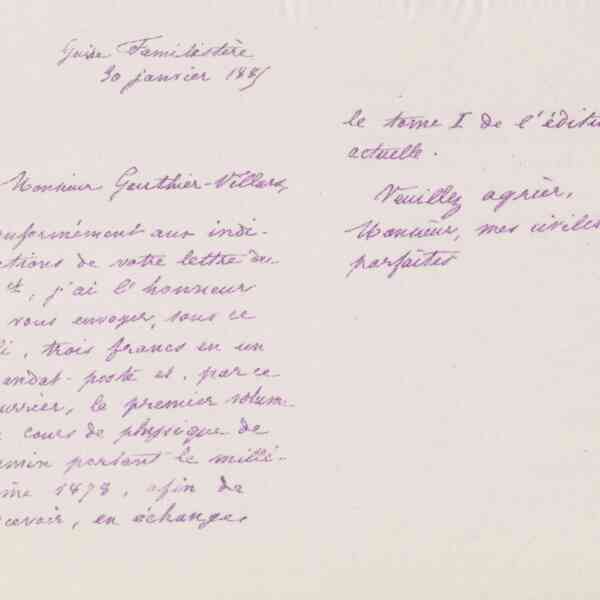 Guise Familistère
30 janvier 1885
Monsieur Gauthier-Villars,
onformément aux indi-
ctions de votre lettre du
ct, j'ai l'honneur
vous envoyer, sous ce
li, trois francs en un
andat-poste et, par ce
urrier, le premier volume
cours de physique de
amin portant le millé-
me 1878, afin de
cevoir, en échange,
le tome I de l'éditi
actuelle.
Veuillez agréer,
Monsieur, mes civilités
parfaites